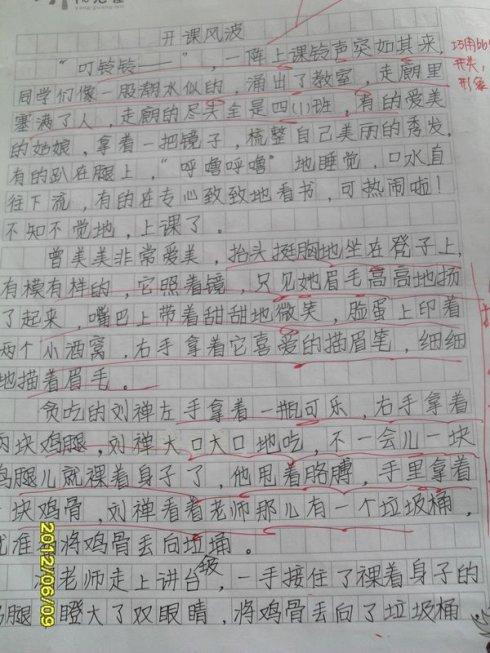 开课风波
“叮铃铃——”,一阵上课铃声突如其来,
同学们像一股潮水似的,涌出了教室,走廊里
塞满了人,走廊的尽头全是四(1)班,有的爱美
的姑娘,拿着一把镜子,梳整自己美丽的秀发,
有的趴在腿上,“呼噜呼噜”地睡觉,口水直
往下流,有的在专心致致地看书,可热闹啦!
不知不觉地,上课了。
曾美美非常爱美,抬头挺胸地坐在凳子上,
有模有样的,它照着镜,只见她眉毛高高地扬
了起来,嘴巴上带着甜甜地微笑,脸蛋上印着
两个小酒窝,右手拿着它喜爱的描眉笔,细细
地描着眉毛。
贪吃的刘禅左手拿着一瓶可乐,右手拿着
两块鸡腿,刘禅大口大口地吃,不一会儿一块
鸡腿儿就裸着身子了,他甩着胳膊,手里拿着
一块鸡骨,刘禅看着老师那儿有一个垃圾桶,
就准备将鸡骨丢向垃圾桶。
老师走上讲台,一手接住了裸着身子的
鸡腿,瞪大了双眼睛,将鸡骨丢向了垃圾桶
巧用
开头,
形象
2012/06/09